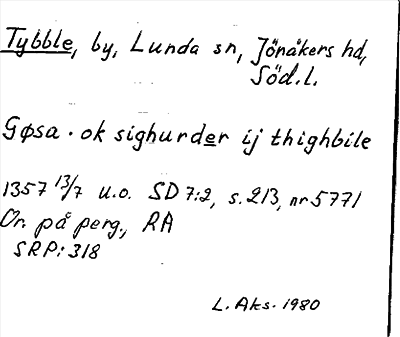 Tybble, by, Lunda sn, Jönåkers hd,
Söd.l.
Gøsa · ok sighurder ij thighbile
1357 13/7 u.o. SD 7:2, s. 213, nr 5771
Or. på perg., RA
SRP: 318
L. Aks. 1980